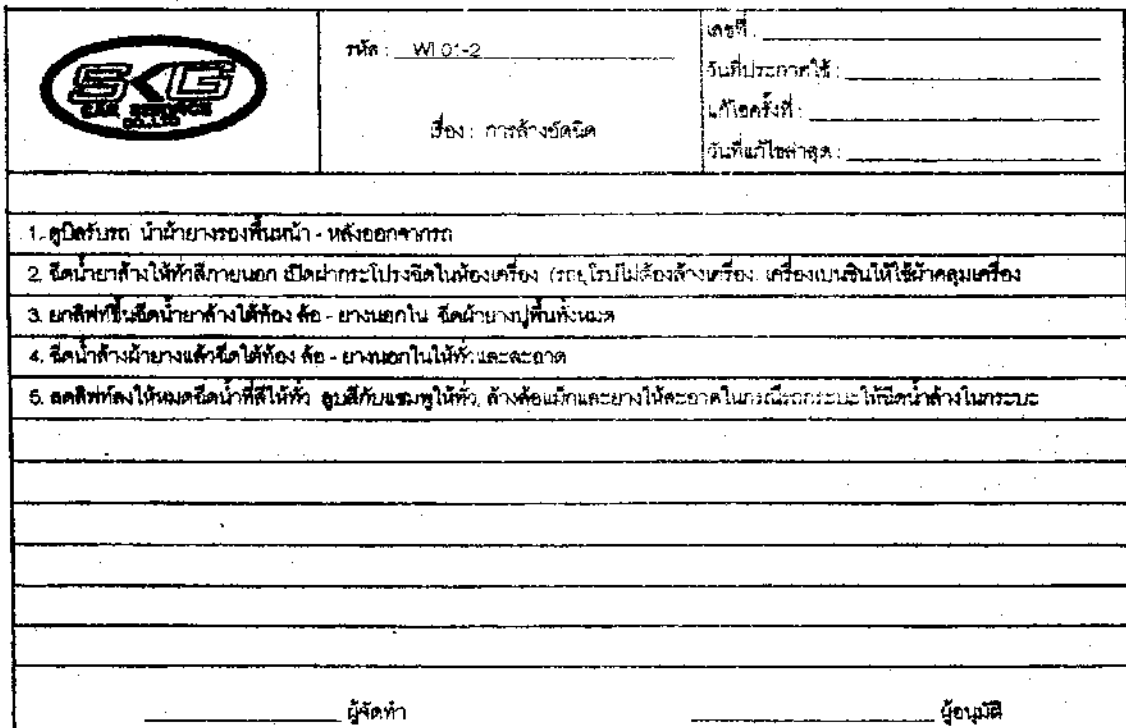 SKG
CAR SERVICE
CO.,LTD
รหัส : WI 01-2
เรื่อง : การล้างอัดฉีด
เลขที่ :
วันที่ประกาศใช้ :
แก้ไขครั้งที่ :
วันที่แก้ไขล่าสุด :
1. ดูบิลรับรถ นำผ้ายางรองพื้นหน้า - หลังออกจากรถ
2. ฉีดน้ำยาล้างให้ทั่วสีภายนอก เปิดฝากระโปรงฉีดในห้องเครื่อง (รถยุโรปไม่ต้องล้างเครื่อง, เครื่องเบนซินให้ใช้ผ้าคลุมเครื่อง
3. ยกลิฟท์ขึ้นฉีดน้ำยาล้างใต้ท้อง ล้อ - ยางนอกใน ฉีดผ้ายางปูพื้นทั้งหมด
4. ฉีดน้ำล้างผ้ายางแล้วฉีดใต้ท้อง ล้อ - ยางนอกในให้ทั่วและสะอาด
5. ลดลิฟท์ลงให้หมดฉีดน้ำที่สีให้ทั่ว ลูบสีกับแชมพูให้ทั่ว, ล้างล้อแม็กและยางให้สะอาดในกรณีรถกระบะให้ฉีดน้ำล้างในกระบะ
ผู้จัดทำ
ผู้อนุมัติ